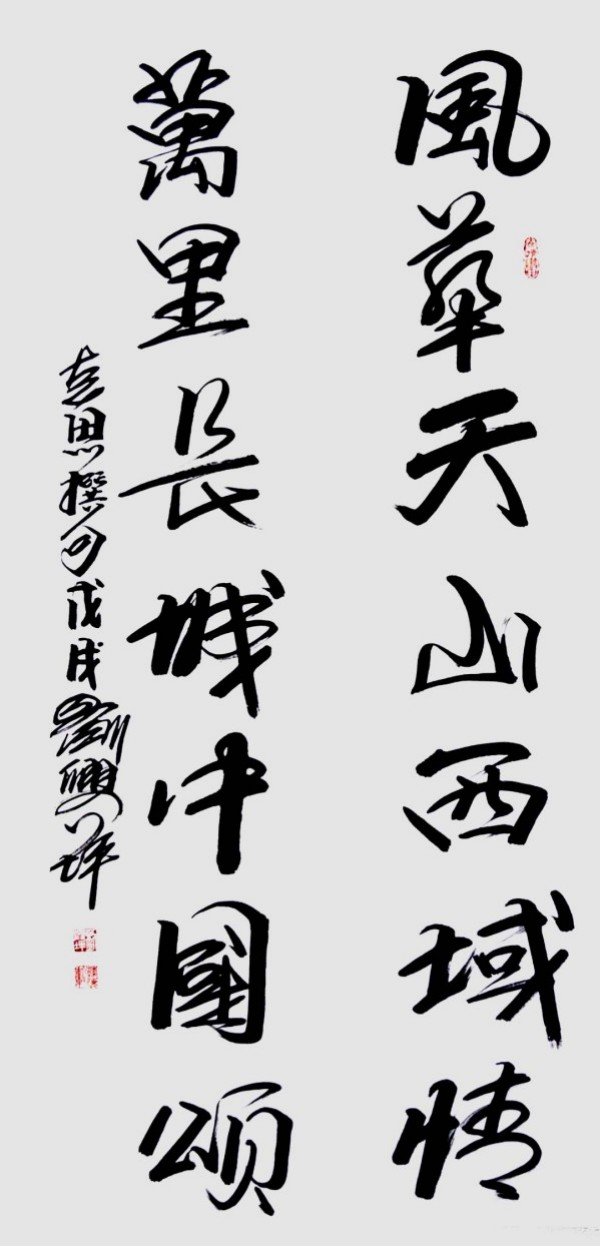 風華天山西域情
萬里長城中國颂
志思撰句戊戌劉雙平